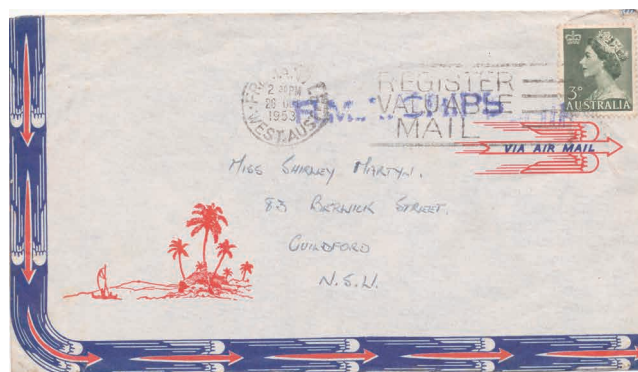 2 PM
1953
WEST. AUST
REGISTER
VALUABLE
MAIL
3D
AUSTRALIA
VIA AIR MAIL
MISS SHIRLEY MARTYN.
83 BERWICK STREET.
GUILDFORD
N.S.W.